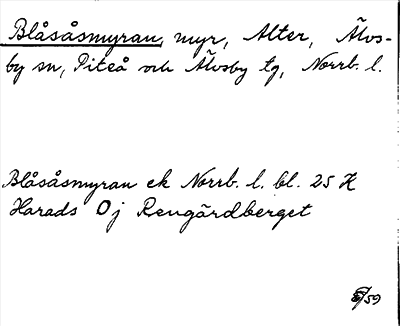 Blåsåsmyran, myr, Alter, Älvs-
by sn, Piteå och Älvsby tg, Norrb. l.
Blåsåsmyran ek Norrb. l. bl. 25 K
Harads Oj Rengårdberget
/59